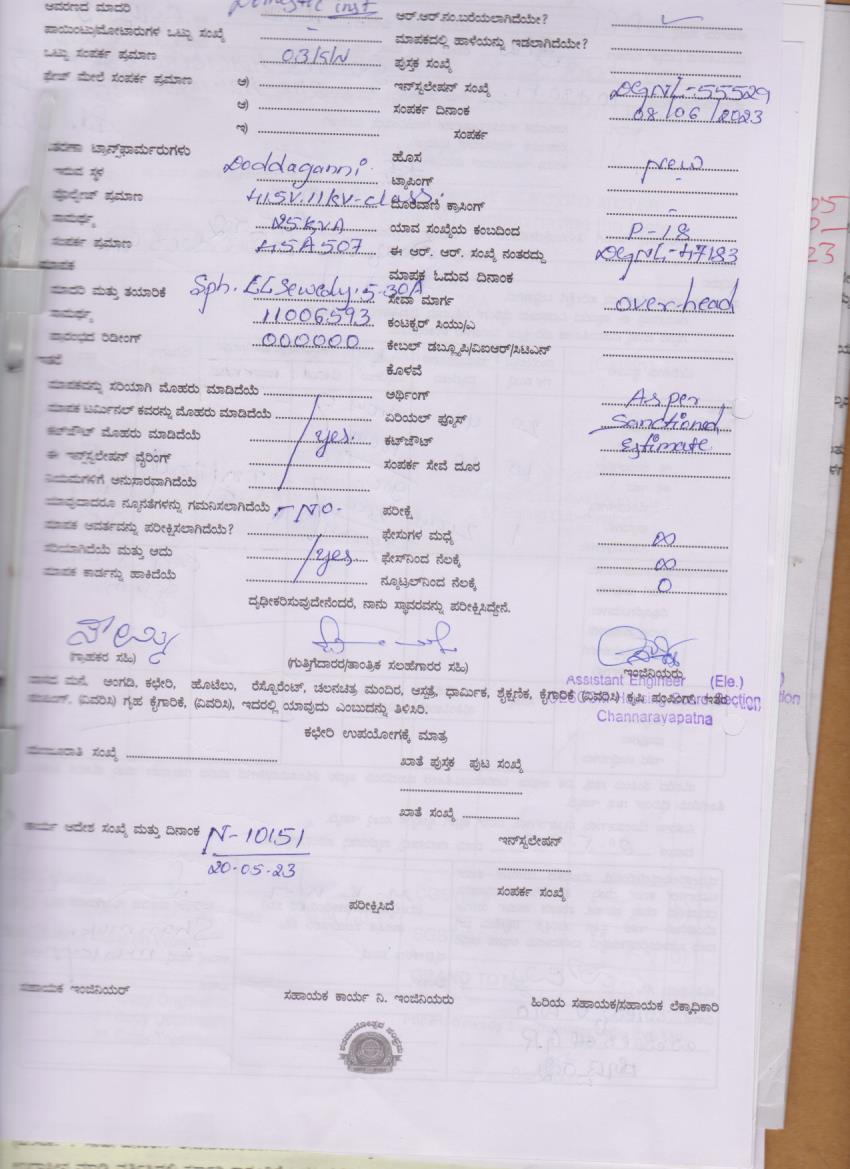 ಆವರಣದ ಮಾದರಿ Domestic inst ಆರ್.ಆರ್.ನಂ.ಬರೆಯಲಾಗಿದೆಯೇ?
ಪಾಯಿಂಟು/ಮೋಟಾರುಗಳ ಒಟ್ಟು ಸಂಖ್ಯೆ - ಮಾಪಕದಲ್ಲಿ ಹಾಳೆಯನ್ನು ಇಡಲಾಗಿದೆಯೇ?
ಒಟ್ಟು ಸಂಪರ್ಕ ಪ್ರಮಾಣ ಪುಸ್ತಕ ಸಂಖ್ಯೆ
ಫೇಜ್ ಮೇಲೆ ಸಂಪರ್ಕ ಪ್ರಮಾಣ ಅ) ಇನ್‌ಸ್ಟಲೇಷನ್ ಸಂಖ್ಯೆ DGNL-55529
ಆ) ಸಂಪರ್ಕ ದಿನಾಂಕ 08/06/2023
ಇ) ಸಂಪರ್ಕ
ಟ್ರಾನ್ಸ್‌ಫಾರ್ಮರುಗಳು ಹೊಸ new
ಇರುವ ಸ್ಥಳ Doddaganni. ಟ್ಯಾಪಿಂಗ್ -
ವೋಲ್ಟೇಜ್ ಪ್ರಮಾಣ 415V.11kV-class. ದೂರವಾಣಿ ಕ್ರಾಸಿಂಗ್ -
ಸಾಮರ್ಥ್ಯ 25kVA ಯಾವ ಸಂಖ್ಯೆಯ ಕಂಬದಿಂದ P-18
ಸಂಪರ್ಕ ಪ್ರಮಾಣ HSA507 ಈ ಆರ್. ಆರ್. ಸಂಖ್ಯೆ ನಂತರದ್ದು DGNL-47183
ಮಾಪಕ ಮಾಪಕ ಓದುವ ದಿನಾಂಕ
ಮಾದರಿ ಮತ್ತು ತಯಾರಿಕೆ Sph. ELSewedy. 5-30A ಸೇವಾ ಮಾರ್ಗ over-head
ಸಾಮರ್ಥ್ಯ 11006593 ಕಂಟಕ್ಟರ್ ಸಿಯು/ಎ
ಪ್ರಾರಂಭದ ರಿಡೀಂಗ್ 000000 ಕೇಬಲ್ ಡಬ್ಲ್ಯೂಪಿ/ವಿಐಆರ್/ಸಿಟಿಎನ್
ಇತರೆ ಕೊಳವೆ
ಮಾಪಕವನ್ನು ಸರಿಯಾಗಿ ಮೊಹರು ಮಾಡಿದೆಯೆ ಅರ್ಥಿಂಗ್ As per
ಮಾಪಕ ಟರ್ಮಿನಲ್ ಕವರನ್ನು ಮೊಹರು ಮಾಡಿದೆಯೆ ಏರಿಯಲ್ ಫ್ಯೂಸ್ Sanctioned
ಕಟ್‌ಔಟ್ ಮೊಹರು ಮಾಡಿದೆಯೆ yes. ಕಟ್‌ಔಟ್ Estimate
ಈ ಇನ್‌ಸ್ಟಲೇಷನ್ ವೈರಿಂಗ್ ಸಂಪರ್ಕ ಸೇವೆ ದೂರ
ನಿಯಮಗಳಿಗೆ ಅನುಸಾರವಾಗಿದೆಯೆ
ಯಾವುದಾದರೂ ನ್ಯೂನತೆಗಳನ್ನು ಗಮನಿಸಲಾಗಿದೆಯೆ - NO. ಪರೀಕ್ಷೆ
ಮಾಪಕ ಆವರ್ತವನ್ನು ಪರೀಕ್ಷಿಸಲಾಗಿದೆಯೆ? ಫೇಸುಗಳ ಮಧ್ಯೆ ∞
ಸರಿಯಾಗಿದೆಯೆ ಮತ್ತು ಅದು yes ಫೇಸ್‌ನಿಂದ ನೆಲಕ್ಕೆ ∞
ಮಾಪಕ ಕಾರ್ಡನ್ನು ಹಾಕಿದೆಯೆ ನ್ಯೂಟ್ರಲ್‌ನಿಂದ ನೆಲಕ್ಕೆ 0
ದೃಢೀಕರಿಸುವುದೇನೆಂದರೆ, ನಾನು ಸ್ಥಾವರವನ್ನು ಪರೀಕ್ಷಿಸಿದ್ದೇನೆ.
(ಗ್ರಾಹಕರ ಸಹಿ) (ಗುತ್ತಿಗೆದಾರರ/ತಾಂತ್ರಿಕ ಸಲಹೆಗಾರರ ಸಹಿ) ಇಂಜಿನಿಯರು
Assistant Engineer (Ele.)
ವಾಸದ ಮನೆ, ಅಂಗಡಿ, ಕಛೇರಿ, ಹೊಟೆಲು, ರೆಸ್ಟೊರೆಂಟ್, ಚಲನಚಿತ್ರ ಮಂದಿರ, ಆಸ್ಪತ್ರೆ, ಧಾರ್ಮಿಕ, ಶೈಕ್ಷಣಿಕ, ಕೈಗಾರಿಕೆ (ವಿವರಿಸಿ) ಕೃಷಿ ಪಂಪಿಂಗ್, ಇತರೆ
(ವಿವರಿಸಿ) ಗೃಹ ಕೈಗಾರಿಕೆ, (ವಿವರಿಸಿ), ಇದರಲ್ಲಿ ಯಾವುದು ಎಂಬುದನ್ನು ತಿಳಿಸಿರಿ.
Channarayapatna
ಕಛೇರಿ ಉಪಯೋಗಕ್ಕೆ ಮಾತ್ರ
ಮಂಜೂರಾತಿ ಸಂಖ್ಯೆ ಖಾತೆ ಪುಸ್ತಕ ಪುಟ ಸಂಖ್ಯೆ
ಖಾತೆ ಸಂಖ್ಯೆ
ಕಾರ್ಯ ಆದೇಶ ಸಂಖ್ಯೆ ಮತ್ತು ದಿನಾಂಕ N-10151 ಇನ್‌ಸ್ಟಲೇಷನ್
20-05-23
ಸಂಪರ್ಕ ಸಂಖ್ಯೆ
ಪರೀಕ್ಷಿಸಿದೆ
ಸಹಾಯಕ ಇಂಜಿನಿಯರ್ ಸಹಾಯಕ ಕಾರ್ಯ ನಿ. ಇಂಜಿನಿಯರು ಹಿರಿಯ ಸಹಾಯಕ/ಸಹಾಯಕ ಲೆಕ್ಕಾಧಿಕಾರಿ